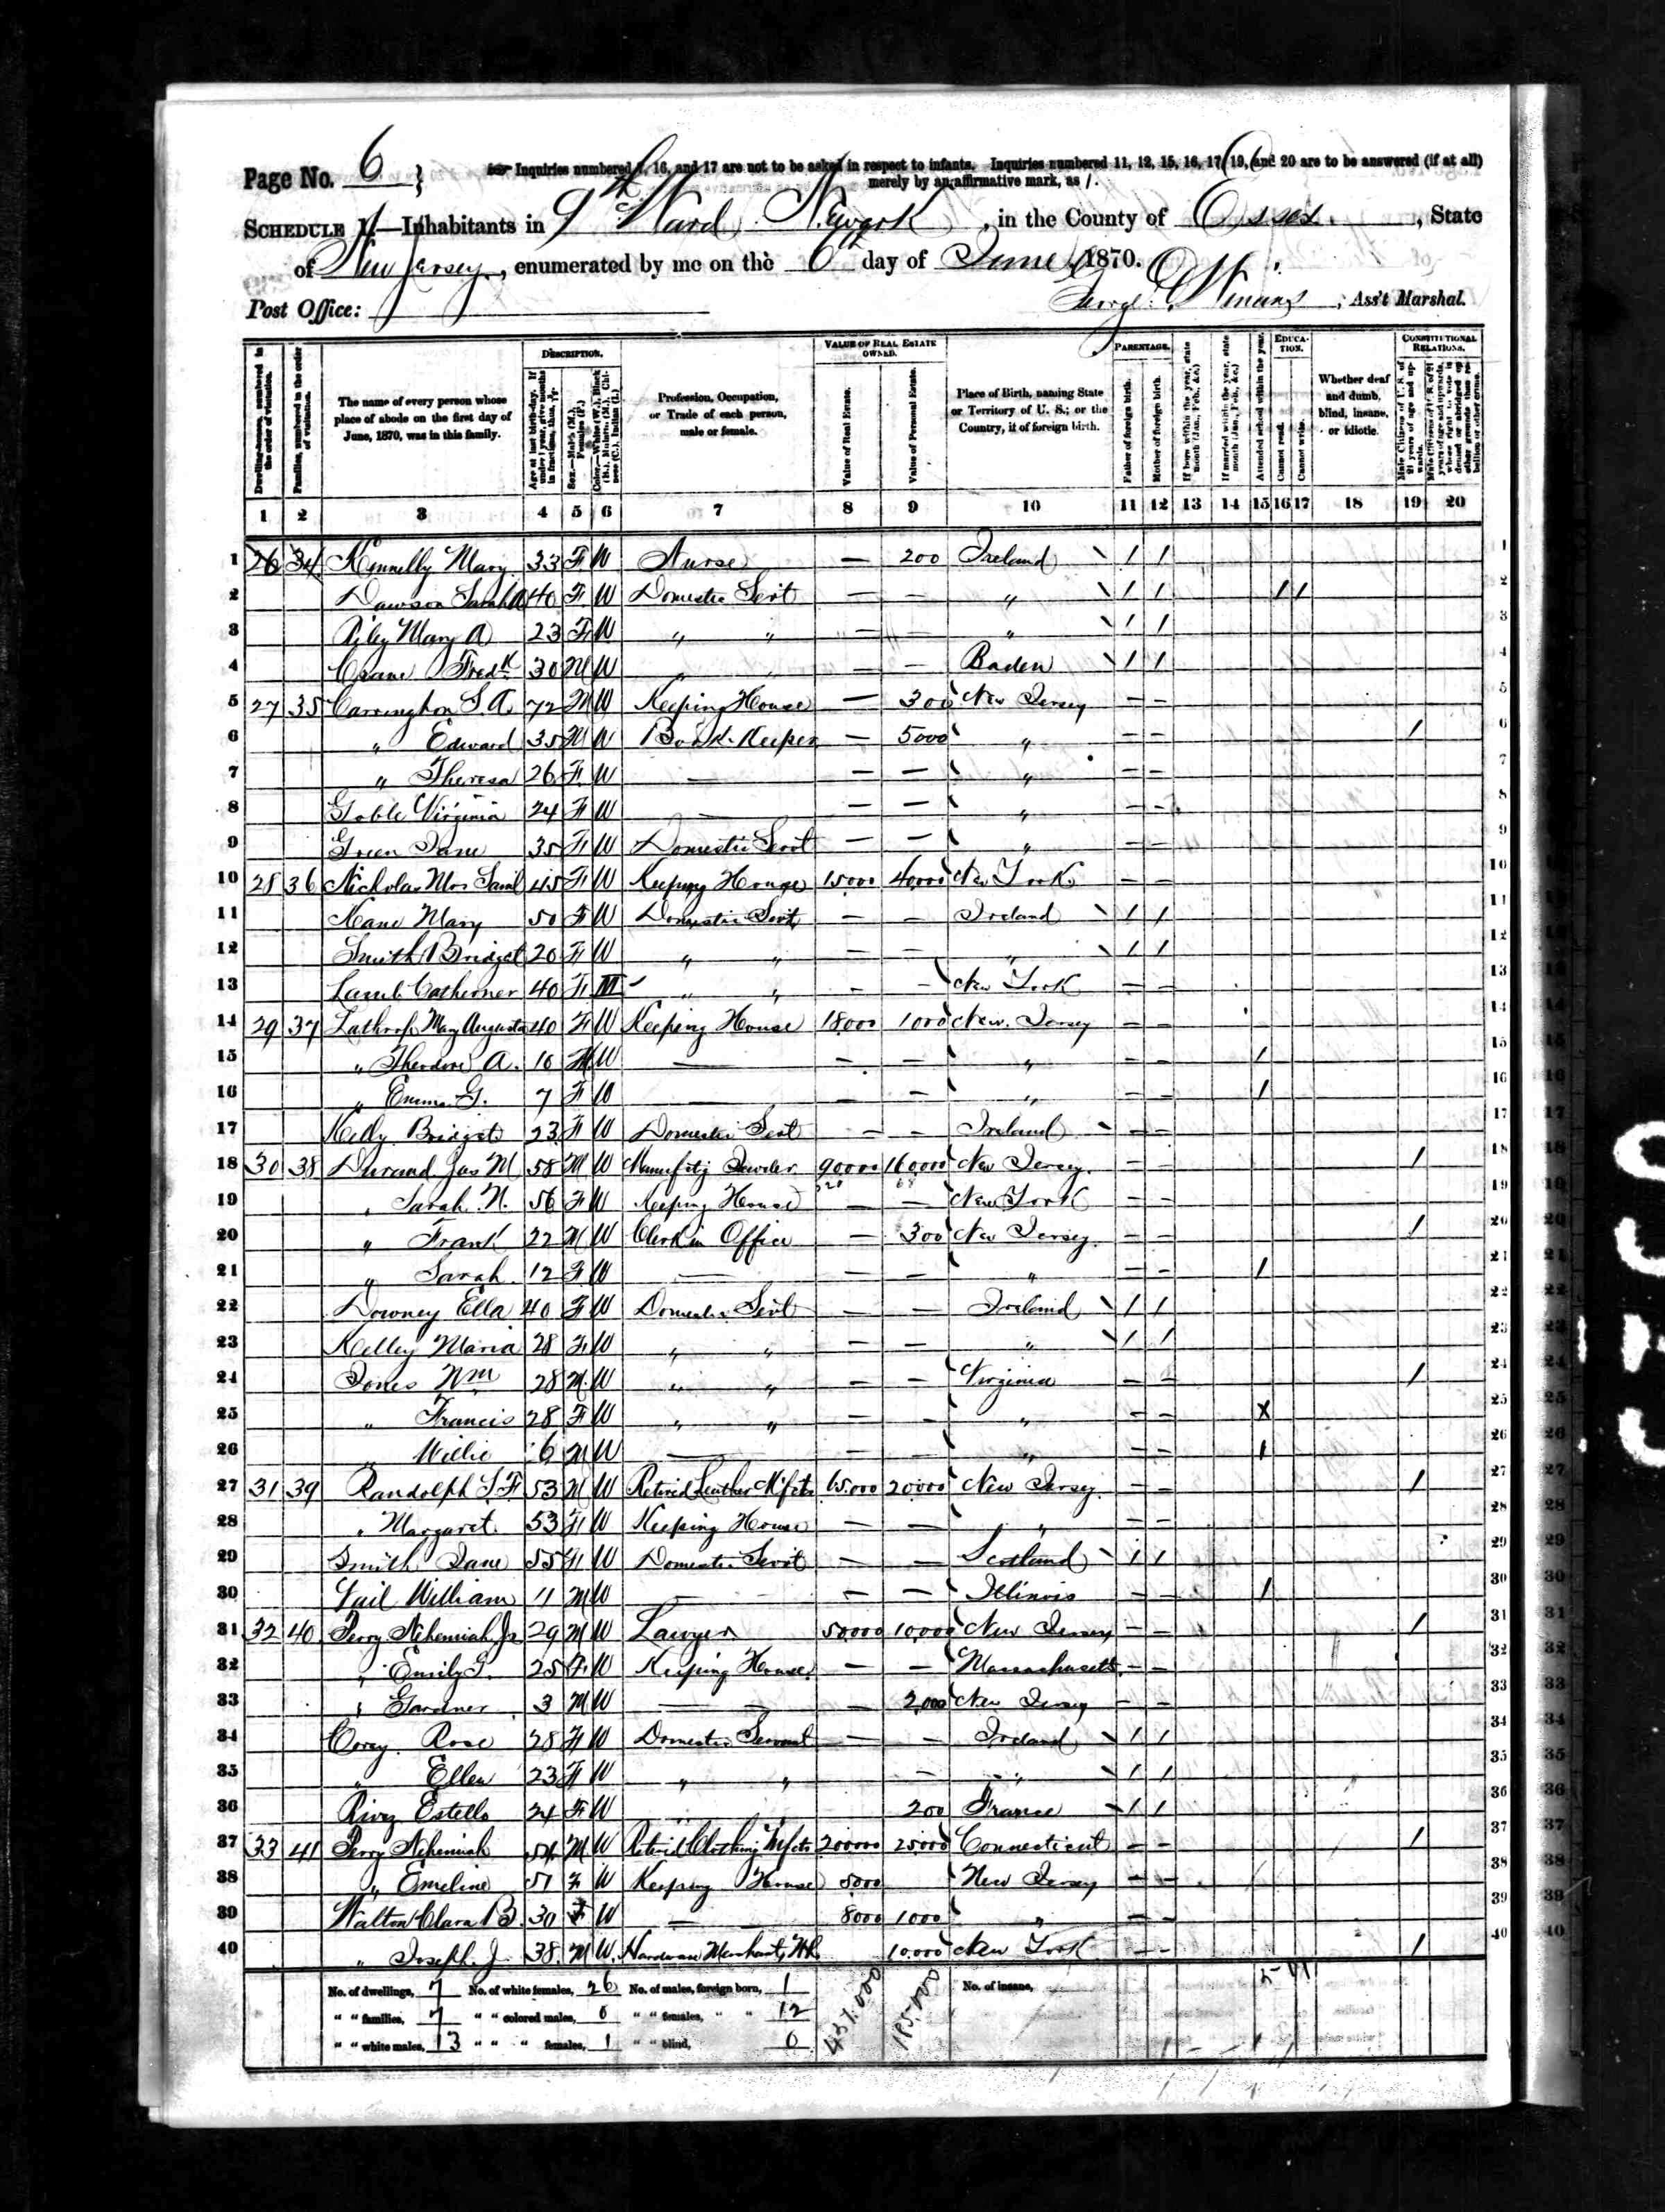 Page No. 6
Inquiries numbered 7, 16, and 17 are not to be asked in respect to infants. Inquiries numbered 11, 12, 15, 16, 17, 19, and 20 are to be answered (if at all)
merely by an affirmative mark, as /.
SCHEDULE 1.—Inhabitants in 9th Ward Newark, in the County of Essex, State
of New Jersey, enumerated by me on the 6 day of June, 1870.
Post Office:
George, Ass't Marshal.
DESCRIPTION. VALUE OF REAL ESTATE OWNED. PARENTAGE. EDUCATION. CONSTITUTIONAL RELATIONS.
Dwelling-houses, numbered in the order of visitation.
Families, numbered in the order of visitation.
The name of every person whose place of abode on the first day of June, 1870, was in this family.
Profession, Occupation, or Trade of each person, male or female.
Value of Real Estate.
Value of Personal Estate.
Place of Birth, naming State or Territory of U. S.; or the Country, if of foreign birth.
Father of foreign birth.
Mother of foreign birth.
Attended school within the year.
Cannot read.
Cannot write.
Whether deaf and dumb, blind, insane, or idiotic.
1 2 3 4 5 6 7 8 9 10 11 12 13 14 15 16 17 18 19 20
1 26 34 Kennelly Mary 33 F W Nurse — 200 Ireland / / 1
2 Dawson Sarah A 40 F W Domestic Servt — — " / / / / 2
3 Riley Mary A 23 F W " " — — " / / 3
4 Crane Fredk 30 M W " " — — Baden / / 4
5 27 35 Carrington S. A. 72 M W Keeping House — 300 New Jersey — — 5
6 " Edward 35 M W Book-Keeper — 5000 " — — / 6
7 " Theresa 26 F W — — — " — — 7
8 Goble Virginia 24 F W — — — " — — 8
9 Green Jane 35 F W Domestic Servt — — " — — 9
10 28 36 Nicholas Mrs Saml 45 F W Keeping House 15000 40,000 New York — — 10
11 Kane Mary 50 F W Domestic Servt — — Ireland / / 11
12 Smith Bridget 20 F W " " — — " / / 12
13 Lamb Catherner 40 F M " " — — New York — — 13
14 29 37 Lathrop Mary Augusta 40 F W Keeping House 18,000 1000 New Jersey — — 14
15 " Theodore A. 10 M W — — — " — — / 15
16 " Emma G. 7 F W — — — " — — / 16
17 Kelly Bridget 23 F W Domestic Servt — — Ireland — — 17
18 30 38 Durand Jas M 58 M W Manufctg Jeweler 90000 16000 New Jersey — — / 18
19 " Sarah N. 56 F W Keeping House — — New York — — 19
20 " Frank 22 M W Clerk in Office — 300 New Jersey — — / 20
21 " Sarah 12 F W — — — " — — / 21
22 Downey Ella 40 F W Domestic Servt — — Ireland / / 22
23 Kelley Maria 28 F W " " — — " / / 23
24 Jones Wm 28 M W " " — — Virginia — — / 24
25 " Francis 28 F W " " — — " — — X 25
26 " Willie 6 M W — — — " — — / 26
27 31 39 Randolph S. F. 53 M W Retired Leather Mfctr 65.000 20000 New Jersey — — / 27
28 " Margaret 53 F W Keeping House — — " — — 28
29 Smith Jane 55 F W Domestic Servt — — Scotland / / 29
30 William 11 M W — — — Illinois — — / 30
31 32 40 Perry Nehemiah Jr 29 M W Lawyer 50,000 10,000 New Jersey — — / 31
32 " Emily G. 25 F W Keeping House — — Massachusetts — — 32
33 " Gardner 3 M W — — 2,000 New Jersey — — 33
34 Corey Rose 28 F W Domestic Servant — — Ireland / / 34
35 " Ellen 23 F W " " — " / / 35
36 Estella 24 F W " " 200 France / / 36
37 33 41 Perry Nehemiah 54 M W Retired Clothing Mfctr 200000 25000 Connecticut — — / 37
38 " Emeline 51 F W Keeping House 5000 New Jersey — — 38
39 Walton Clara B. 30 F W — 8000 1000 " — — 39
40 " Joseph J. 38 M W Hardware Merchant, 10,000 New York — — / 40
No. of dwellings, 7 No. of white females, 26 No. of males, foreign born, 1 No. of insane,
" " families, 7 " " colored males, 0 " " females, " " 12
" " white males, 13 " " " females, 1 " " blind, 0